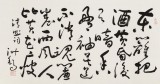 東籬把
酒黄昏後
有暗香
盈袖莫
道不消魂
簾卷西風
人比黄花瘦